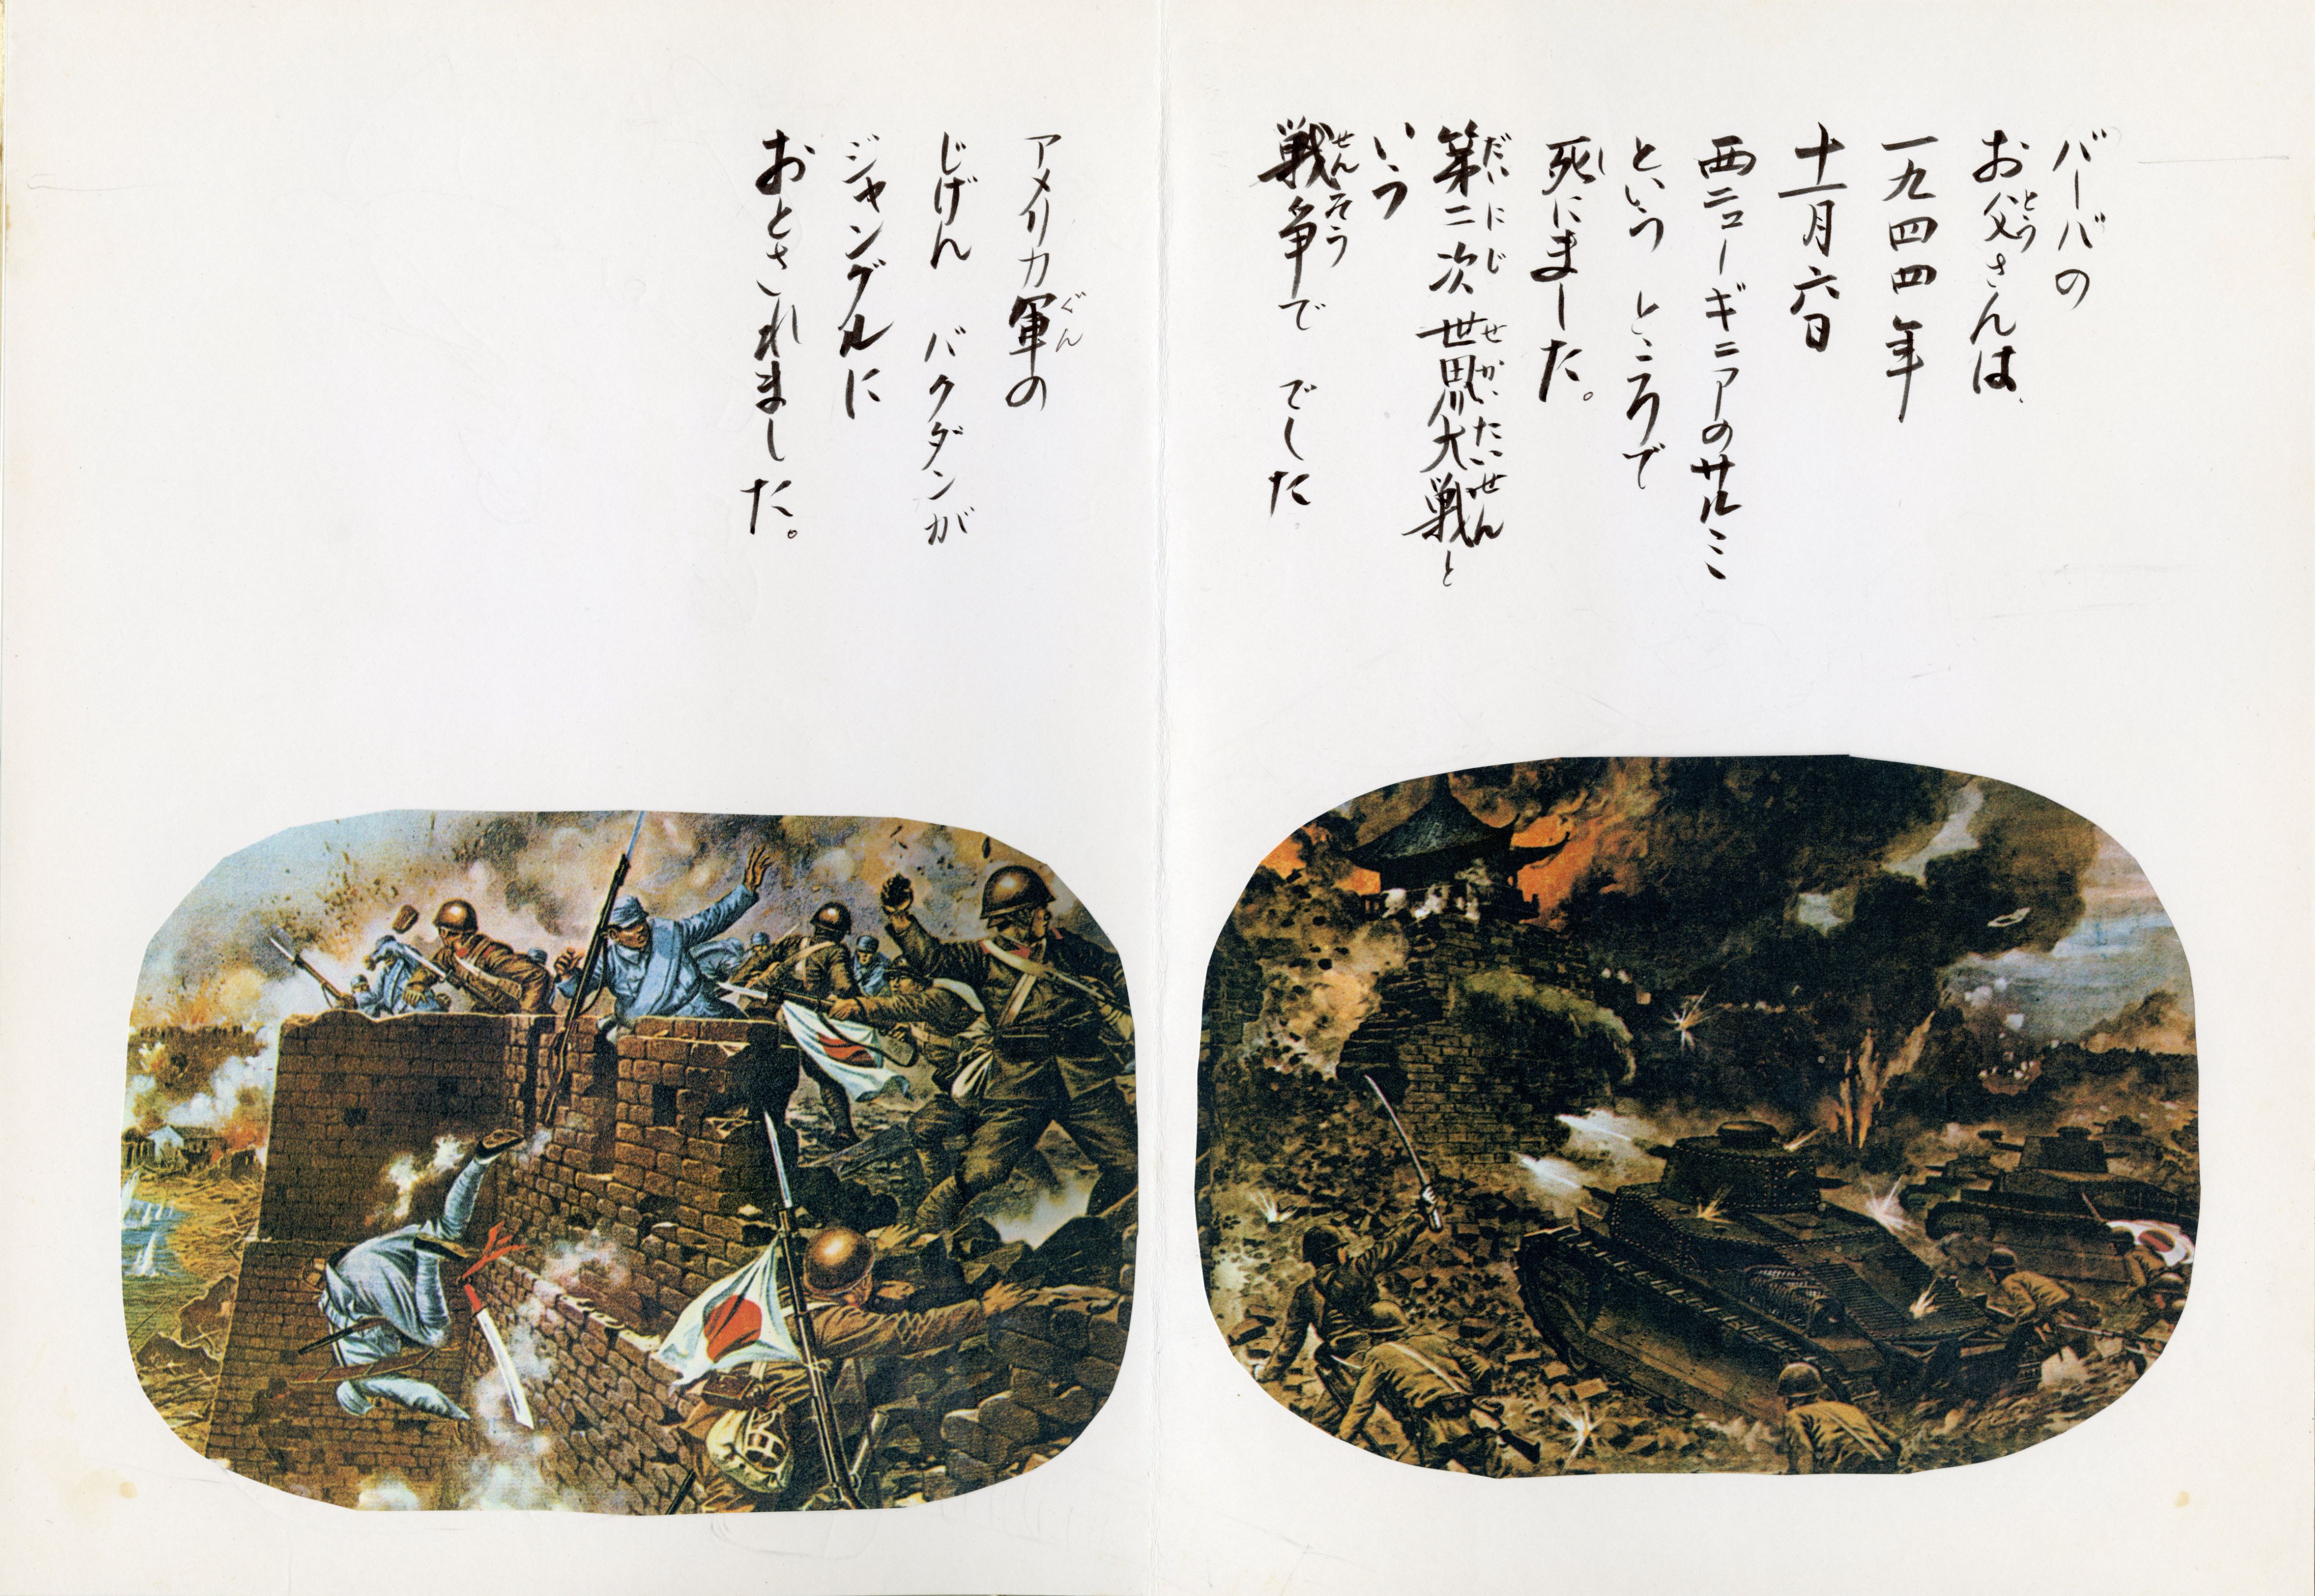 バーバの
お父さんは、
一九四四年
十一月六日
西ニューギニアのサルミ
という ところで
死にました。
第二次世界大戦と
いう
戦争で でした。
アメリカ軍の
じげん バクダンが
ジャングルに
おとされました。
とう
し
だいにじ せかいたいせん
せんそう
ぐん